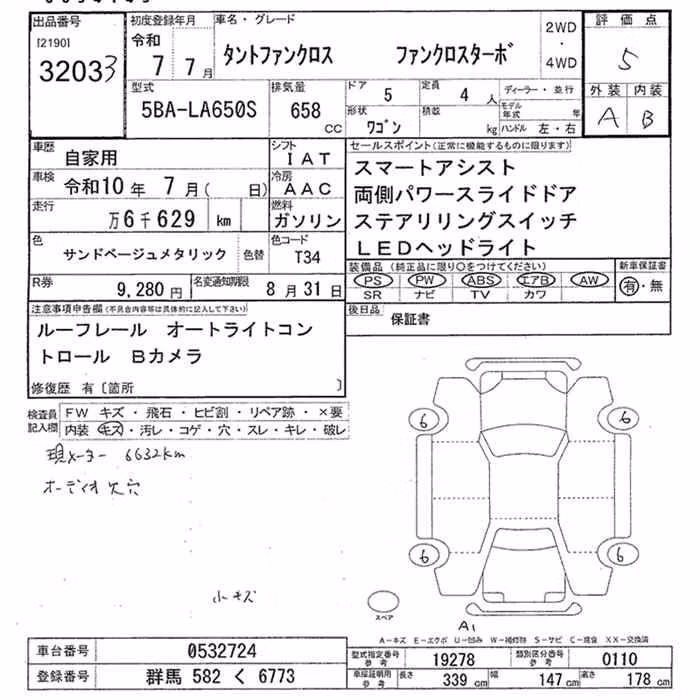 出品番号 初度登録年月 車名・グレード 2WD・4WD 評価点
[2190] 令和 タントファンクロス ファンクロスターボ 5
32033 7 7月
型式 排気量 ドア 定員 ディーラー・並行 外装 内装
5BA-LA650S 658 CC 5 4人 モデル年式 年 A B
形状 積載
ワゴン kg ハンドル 左・右
車歴 自家用 シフト IAT セールスポイント(正常に機能するものに限ります)
車検 令和10年 7月( 日) 冷房 AAC スマートアシスト
走行 万6千629 km 燃料 ガソリン 両側パワースライドドア
ステアリリングスイッチ
LEDヘッドライト
色 サンドベージュメタリック 色替 色コード T34
装備品(純正品に限り○をつけてください) 新車保証書
PS PW ABS エアB AW 有・無
SR ナビ TV カワ
R券 9,280円 名変通知期限 8月31日
注意事項申告欄(不具合内容等は具体的に記入して下さい) 後日品 保証書
ルーフレール オートライトコン
トロール Bカメラ
修復歴 有〔箇所 〕
検査員記入欄 FW キズ・飛石・ヒビ割・リペア跡・×要
内装 キズ・汚レ・コゲ・穴・スレ・キレ・破レ
現メーター 6632km
オーディオ欠穴
小キズ
6 6
6 6
スペア
A1
A-キズ E-エクボ U-凹み W-補修跡 S-サビ C-腐食 XX-交換済
車台番号 0532724 型式指定番号 参考 19278 類別区分番号 参考 0110
登録番号 群馬 582 く 6773 車庫証明用 参考 長さ 339cm 幅 147cm 高さ 178cm